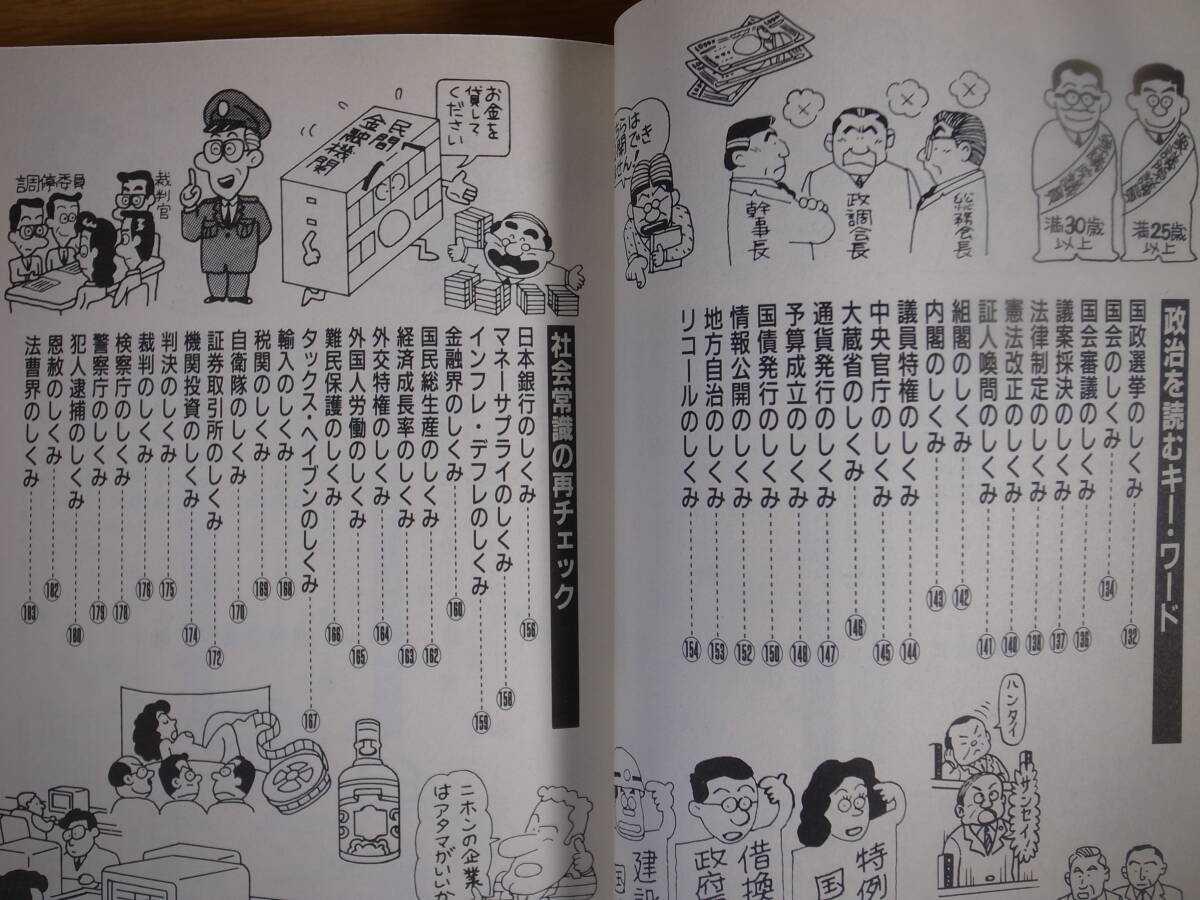 満25歳
以上
満30歳
以上
総務会長
政調会長
幹事長
政治を読むキー・ワード
国政選挙のしくみ 132
国会のしくみ 134
国会審議のしくみ 136
議案採決のしくみ 137
法律制定のしくみ 138
憲法改正のしくみ 140
証人喚問のしくみ 141
組閣のしくみ 142
内閣のしくみ 143
議員特権のしくみ 144
中央官庁のしくみ 145
大蔵省のしくみ 146
通貨発行のしくみ 147
予算成立のしくみ 148
国債発行のしくみ 150
情報公開のしくみ 152
地方自治のしくみ 153
リコールのしくみ 154
ハンタイ
サンセイ!
特例
国
借換
政府
建設
国
お金を
貸して
ください
民間
金融機関
裁判官
調停委員
社会常識の再チェック
日本銀行のしくみ 156
マネーサプライのしくみ 158
インフレ・デフレのしくみ 159
金融界のしくみ 160
国民総生産のしくみ 162
経済成長率のしくみ 163
外交特権のしくみ 164
外国人労働のしくみ 165
難民保護のしくみ 166
タックス・ヘイブンのしくみ 167
輸入のしくみ 168
税関のしくみ 169
自衛隊のしくみ 170
証券取引所のしくみ 172
機関投資のしくみ 174
判決のしくみ 175
裁判のしくみ 176
検察庁のしくみ 178
警察庁のしくみ 179
犯人逮捕のしくみ 180
恩赦のしくみ 182
法曹界のしくみ 183
ニホンの企業
はアタマがいいか